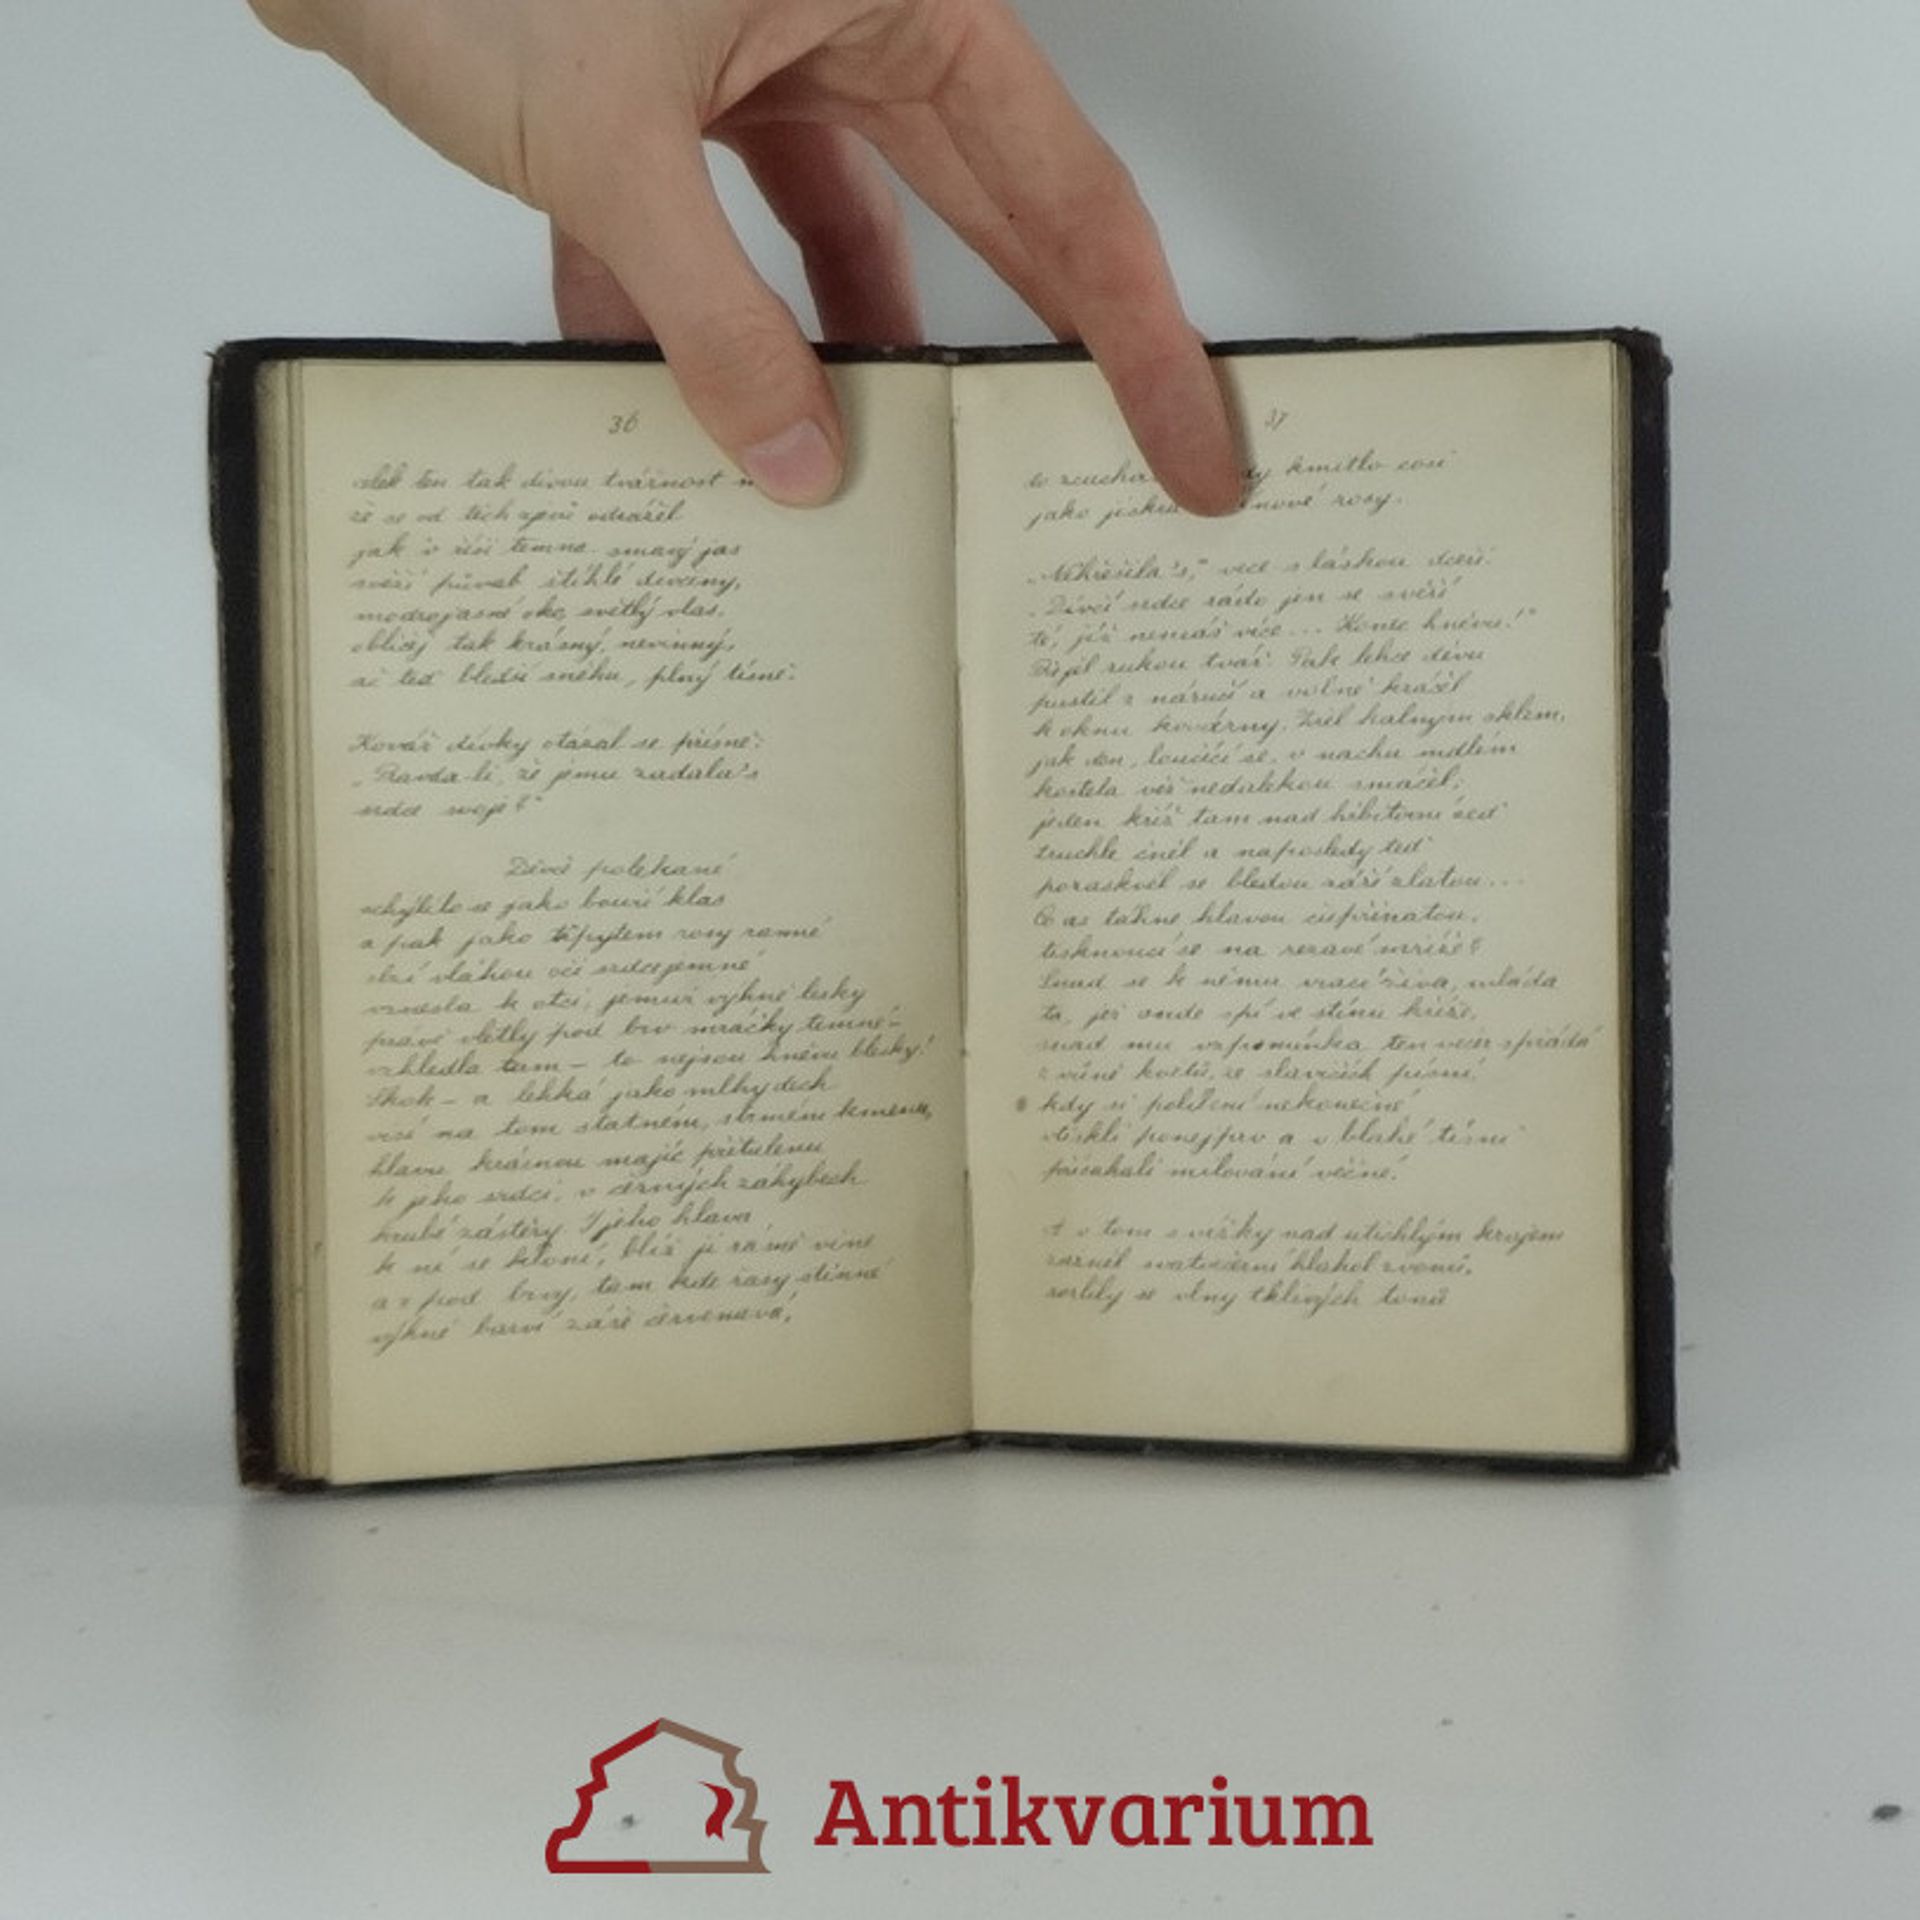 36
ten tak divou tvářnost
že se od těch zpeč odrážel
jak v říši temna smavý jas
svěží půvab štíhlé divčiny,
modrojasné oko, světlý vlas,
obličej tak krásný, nevinný,
ač teď bledší sněhu, plný tísně.
Kovář dívky otázal se přísně:
„Pravda-li, že jemu zadala's
srdce svoje?"
Děvče polekané
schýlilo se jako bouří klas
a pak jako třpytem rosy ranné
slzí vláhou oči srdcejemné
vznesla k otci, jemuž výhně lesky
právě vlétly pod brv mráčky temné –
vzhledla tam – to nejsou hněvu blesky!
Skok – a lehká jako mlhy dech
visí na tom statném, strmém kmenu,
hlavu krásnou majíc přitulenu
k jeho srdci, v černých záhybech
hrubé zástěry. I jeho hlava
k ní se kloní, blíž ji rámě vine
a z pod brvy, tam kde řasy stinné
výhně barví záře červenavá,
37
kmitlo cosi
jako rosy.
„Nehřešila's," vece s láskou dceři.
„Dívčí srdce rádo jen se svěří
té, již nemáš více... Konec hněvu!"
rukou tvář. Pak lehce děvu
pustil z náručí a volně kráčel
k oknu kovárny. Zřel kalným sklem,
jak den, loučící se, v nachu mdlém
kostela věž nedalekou smáčel;
jeden kříž tam nad hřbitovní zeď
truchle čněl a naposledy teď
pozaskvěl se bledou září zlatou...
Co as táhne hlavou
tesknoucí se na rezavé mříže?
Snad se k němu vrací živá, mladá
ta, jež onde spí ve stínu kříže,
snad mu vzpomínka ten večer spřádá
z vůně květů, ze slavičích písní,
kdy si políbení nekonečné
vtiskli ponejprv a v blahé tísni
přísahali milování věčné!
A v tom s věžky nad utichlým krajem
zazněl svatvečerní hlahol zvonů,
rozlily se vlny tklivých tonů
Antikvarium